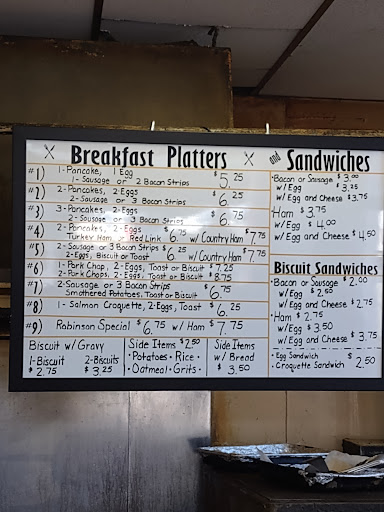 Breakfast Platters
#1) 1-Pancake, 1 Egg
1-Sausage or 2 Bacon Strips $5.25
#2) 2-Pancakes, 2-Eggs
2-Sausage or 3 Bacon Strips $6.25
#3) 3-Pancakes, 2-Eggs
2-Sausage or 3 Bacon Strips $6.75
#4) 2-Pancakes, 2-Eggs
Turkey Ham or Red Link $6.75 w/ Country Ham $7.75
#5) 2-Sausage or 3 Bacon Strips $6.25
2-Eggs, Biscuit or Toast w/ Country Ham $7.75
#6) 1-Pork Chop, 2-Eggs, Toast or Biscuit $7.25
2-Pork Chops, 2-Eggs, Toast or Biscuit $8.75
#7) 2-Sausage or 3 Bacon Strips
Smothered Potatoes, Toast or Biscuit $6.75
#8) 1-Salmon Croquette, 2-Eggs, Toast $6.25
#9) Robinson Special $6.75 w/ Ham $7.75
Biscuit w/ Gravy
1-Biscuit 2-Biscuits
$2.75 $3.25
Side Items $2.50
•Potatoes•Rice•
•Oatmeal•Grits•
Side Items
w/ Bread
$3.50
and Sandwiches
•Bacon or Sausage $3.00
w/ Egg $3.25
w/ Egg and Cheese $3.75
•Ham $3.75
w/ Egg $4.00
w/ Egg and Cheese $4.50
Biscuit Sandwiches
•Bacon or Sausage $2.00
w/ Egg $2.50
w/ Egg and Cheese $2.75
•Ham $2.75
w/ Egg $3.50
w/ Egg and Cheese $3.75
•Egg Sandwich
•Croquette Sandwich $2.50